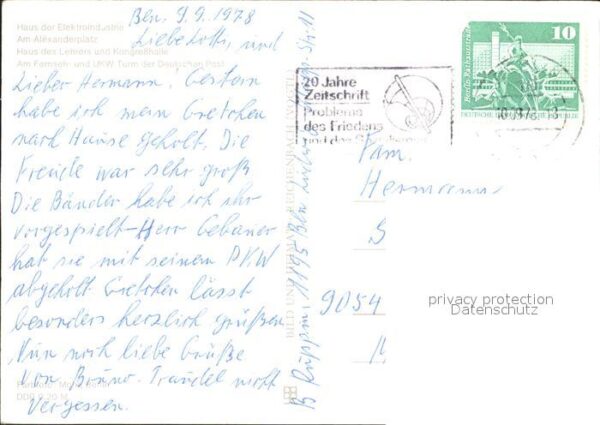 Bln. 9.9.1978
Haus der Elektroindustrie
Am Alexanderplatz
Haus des Lehrers und Kongreßhalle
Am Fernseh- und UKW-Turm der Deutschen Post
Liebe Lotte, und
Lieber Hermann! Gestern
habe ich mein Gretchen
nach Hause geholt. Die
Freude war sehr groß
Die Bänder habe ich ihr
vorgespielt-Herr Gebauer
hat sie mit seinem PKW
abgeholt Gretchen lässt
besonders herzlich grüßen
Nun noch liebe Grüße
von Bruno. Traudel nicht
vergessen.
DDR 0,20 M
B Ruppin, 1195 Bln
BILD UND HEIMAT REICHENBACH
20 Jahre
Zeitschrift
Probleme
des Friedens
und des
10
Berlin, Rathausstraße
DEUTSCHE DEMOKRATISCHE REPUBLIK
Fam.
Hermann
9054
privacy protection
Datenschutz